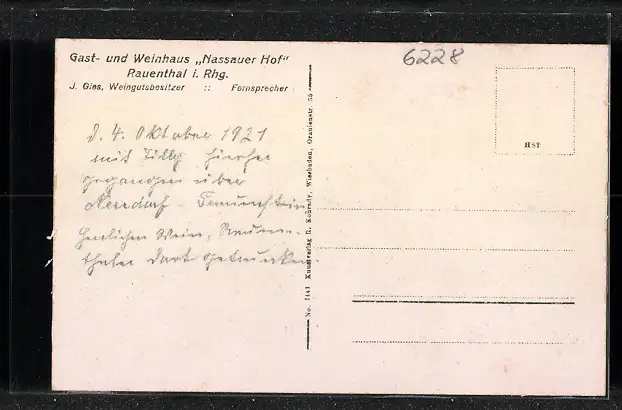 Gast- und Weinhaus „Nassauer Hof"
Rauenthal i. Rhg.
J. Gies, Weingutsbesitzer :: Fernsprecher
6228
HST
d. 4. Oktober 1921
mit Tilly hierher
gegangen über
Neudorf - 
Herrlichen Wein, Rauen-
thaler dort getrunken
No. 1441 Kunstverlag R. Konrady, Wiesbaden, Oranienstr. 55